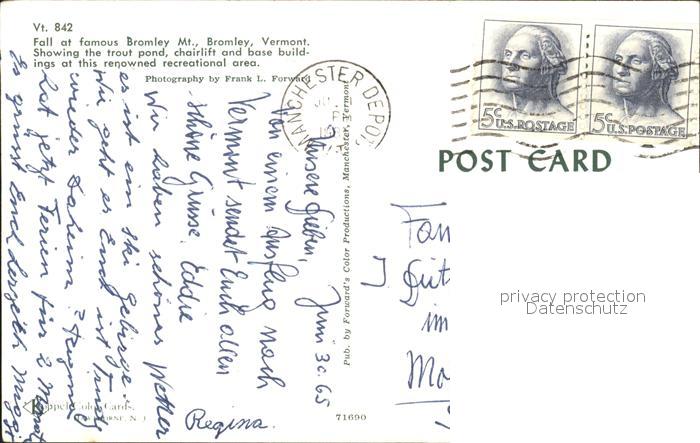 Vt. 842
Fall at famous Bromley Mt., Bromley, Vermont.
Showing the trout pond, chairlift and base build-
ings at this renowned recreational area.
Photography by Frank L. Forward
MANCHESTER DEPOT,
5c U.S. POSTAGE
5c U.S. POSTAGE
POST CARD
Juni 30.65
Unsere Lieben,
Von einem Ausflug nach
Vermont sendet Euch allen
schöne Grüsse Eddie
Wir haben schönes Wetter
es ist ein Ski gebirge.
Wie geht es Euch ist Trudy
wieder daheim?
hat jetzt Ferien für 2 Monate
Es grüsst Euch herzlich
Regina.
Pub. by Forward's Color Productions, Manchester, Vermont
Color Cards.
N. J.
71690
Fam
J
Güt
im
Mo
privacy protection
Datenschutz